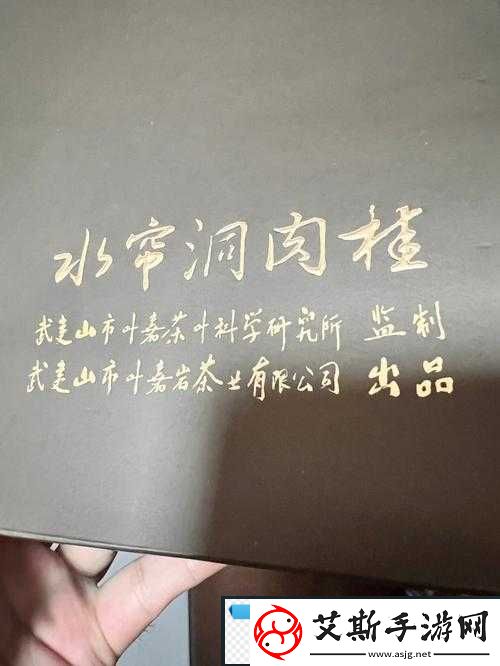 水帘洞肉桂
武夷山市叶嘉茶叶科学研究所 监制
武夷山市叶嘉岩茶业有限公司 出品
艾斯手游网
www.asjg.net